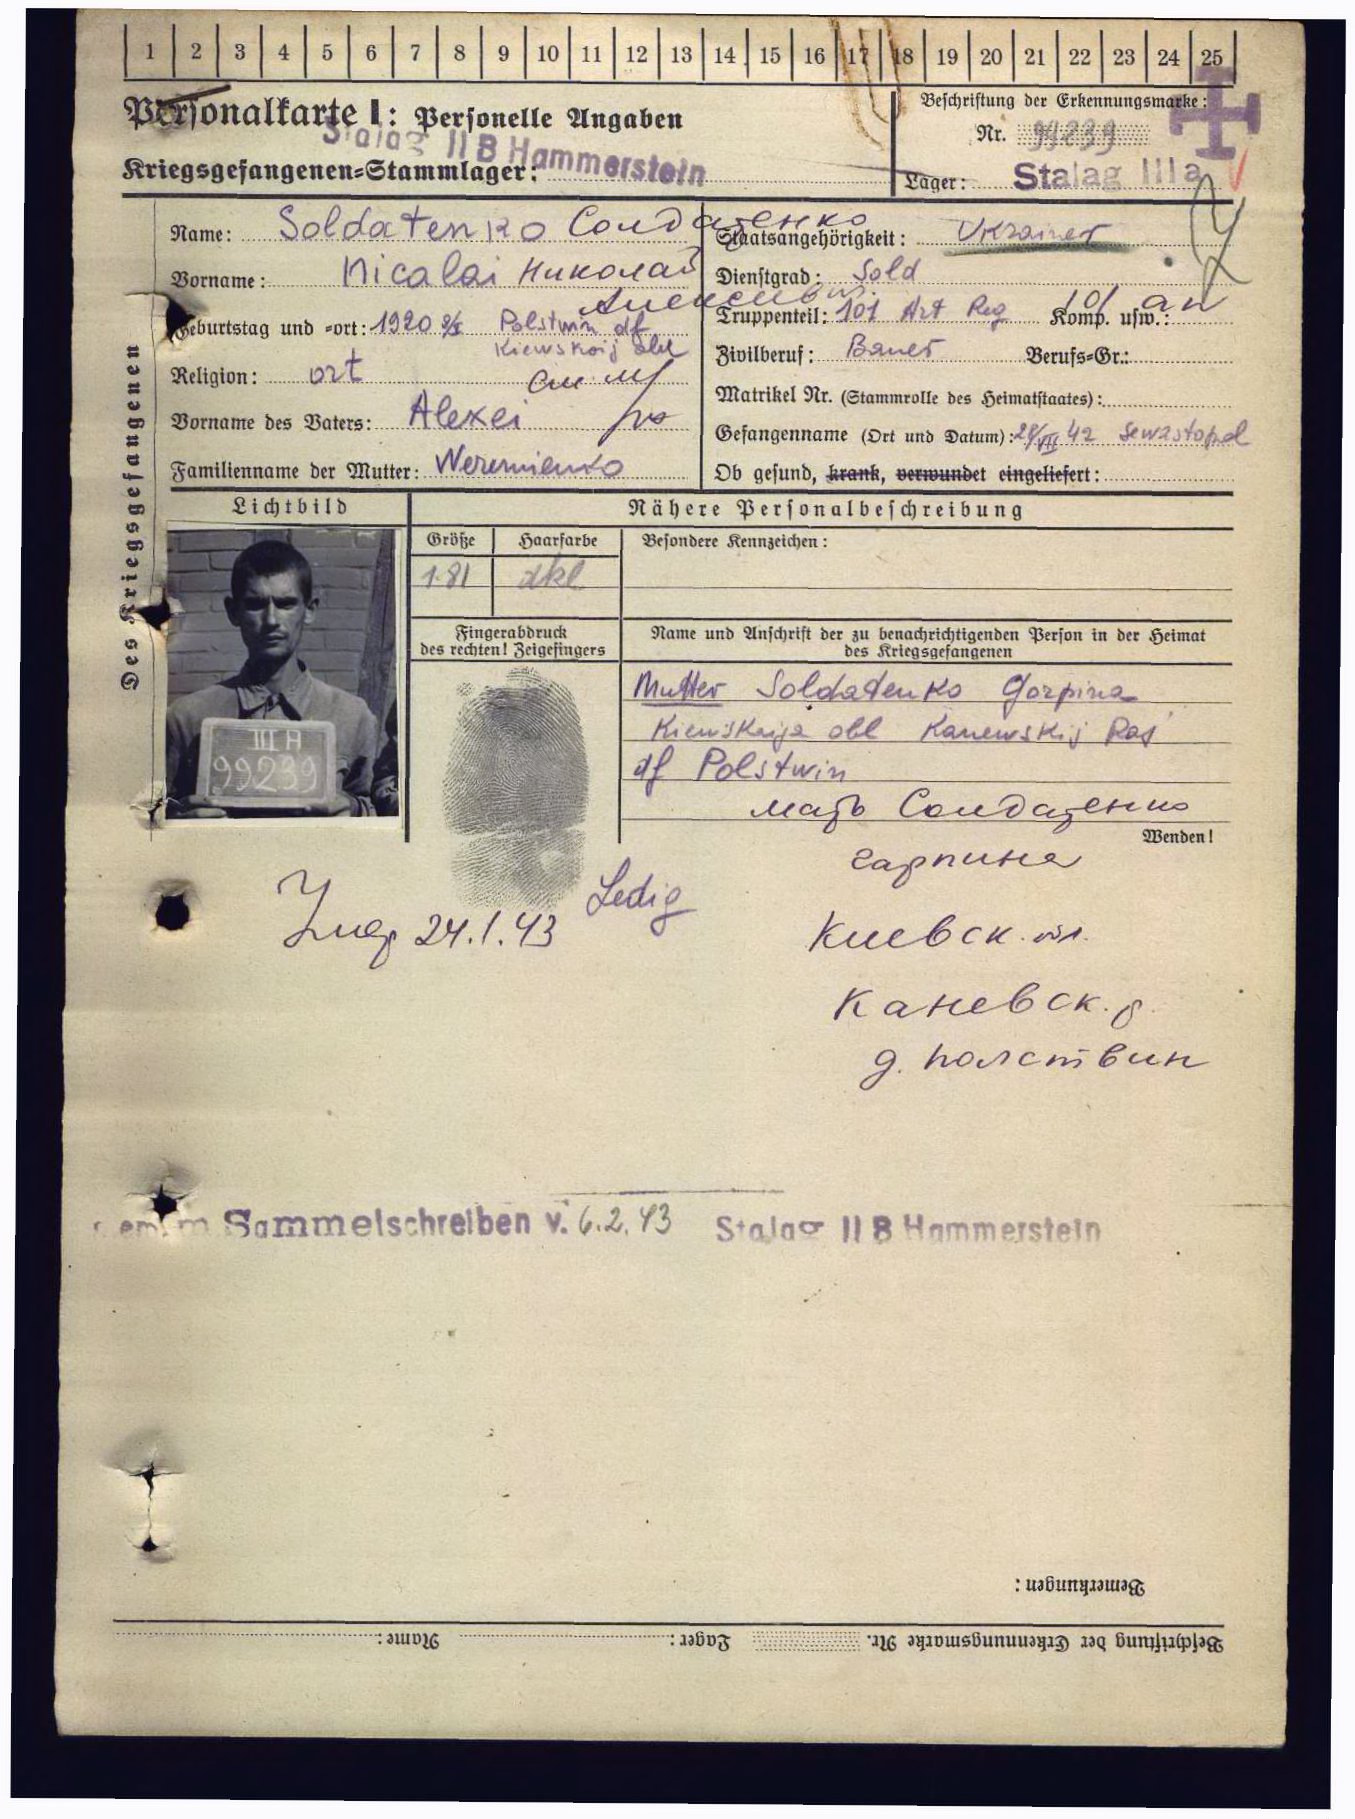 1 2 3 4 5 6 7 8 9 10 11 12 13 14 15 16 17 18 19 20 21 22 23 24 25
Personalkarte I: Personelle Angaben
Beschriftung der Erkennungsmarke:
Nr. 99239
Stalag II B Hammerstein
Kriegsgefangenen-Stammlager:
Lager: Stalag III a
Des Kriegsgefangenen
Name: Soldatenko Солдатенко
Vorname: Nicalai Николай
Алексеевич
Geburtstag und -ort: 1920 Polstwin df
Kiewskoij obl
Religion: ort
Vorname des Vaters: Alexei
Familienname der Mutter: Weremienko
Staatsangehörigkeit: Ukrainer
Dienstgrad: Sold
Truppenteil: 101 Art Reg Komp. usw.:
Zivilberuf: Bauer Berufs-Gr.:
Matrikel Nr. (Stammrolle des Heimatstaates):
Gefangenname (Ort und Datum): VII 42 Sewastopol
Ob gesund, krank, verwundet eingeliefert:
Lichtbild
Nähere Personalbeschreibung
Größe Haarfarbe Besondere Kennzeichen:
1.81 dkl
Fingerabdruck
des rechten! Zeigefingers
Name und Anschrift der zu benachrichtigenden Person in der Heimat
des Kriegsgefangenen
III A
99239
Mutter Soldatenko Gorpina
Kiewskaija obl Kanewskij Raj
df Polstwin
мать Солдатенко
Wenden!
гарпина
Ledig
24.1.43
Киевск. обл.
Каневск. р.
д. Полствин
Sammelschreiben v. 6.2.43 Stalag II B Hammerstein
Bemerkungen:
Beschriftung der Erkennungsmarke Nr. Lager: Name: